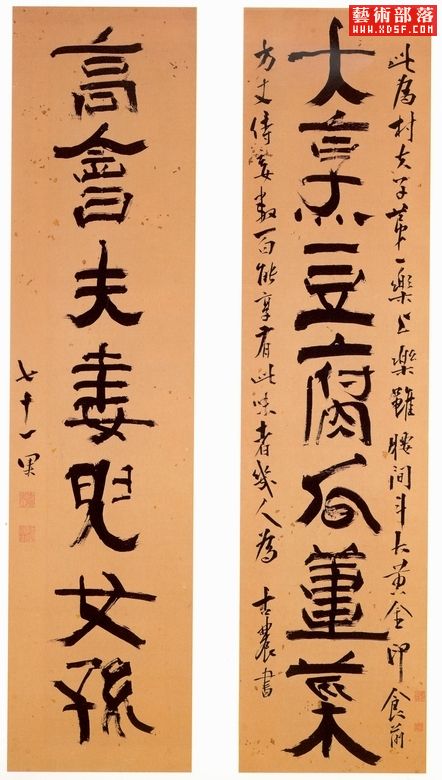 藝術部落
WWW.XDSF.COM
此為村夫子第一樂上樂雖腰間斗大黃金印食前
大烹豆腐瓜薑菜
方丈侍妾數百能享有此味者幾人為 古農書
高會夫妻兒女孫
七十一果